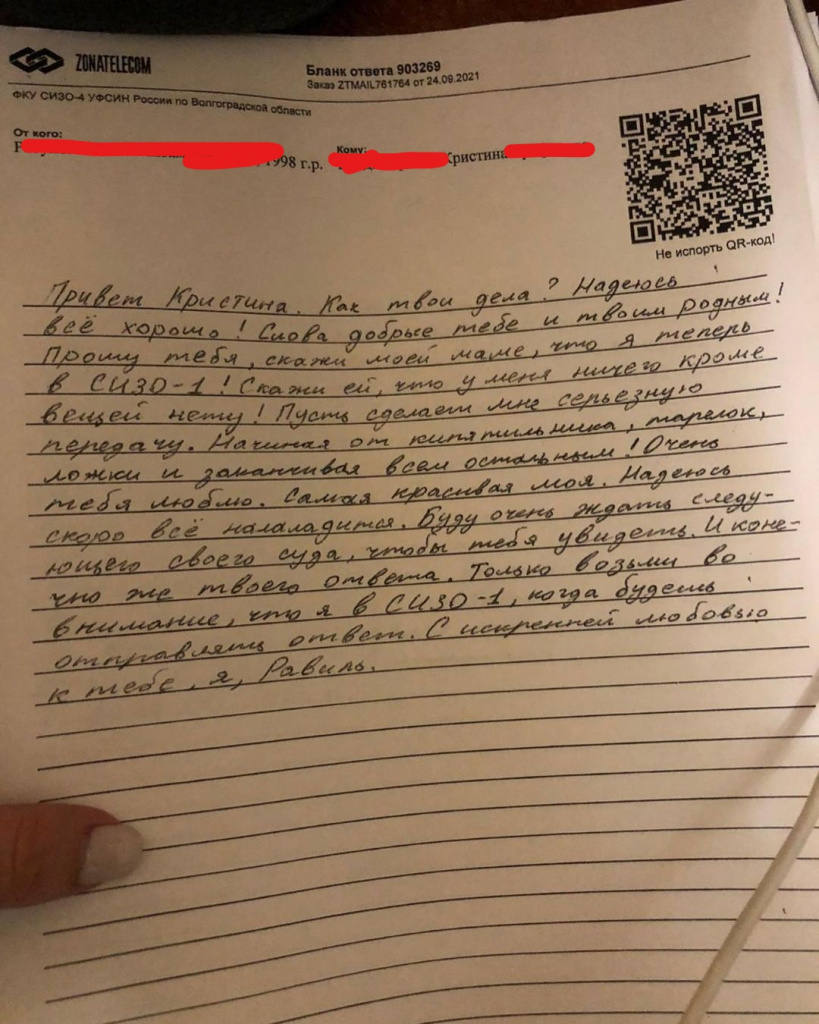 ZONATELECOM
Бланк ответа 903269
Заказ ZTMAIL761764 от 24.09.2021
ФКУ СИЗО-4 УФСИН России по Волгоградской области
От кого:
1998 г.р.
Кому:
Кристина
Не испорть QR-код!
Привет Кристина. Как твои дела? Надеюсь
всё хорошо! Слова добрые тебе и твоим родным!
Прошу тебя, скажи моей маме, что я теперь
в СИЗО-1! Скажи ей, что у меня ничего кроме
вещей нету! Пусть сделает мне серьезную
передачу. Начиная от кипятильника, тарелок,
ложки и заканчивая всем остальным! Очень
тебя люблю. Самая красивая моя. Надеюсь
скоро всё налаладится. Буду очень ждать следу-
ющего своего суда, чтобы тебя увидеть. И коне-
чно же твоего ответа. Только возьми во
внимание, что я в СИЗО-1, когда будешь
отправлять ответ. С искренней любовью
к тебе, я, Равиль.